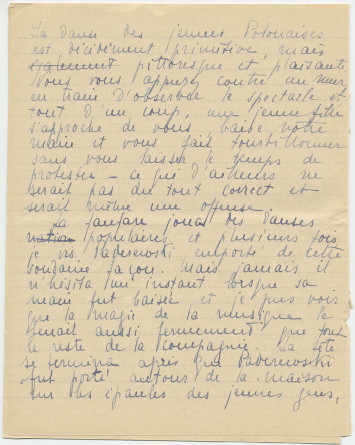 La danse des jeunes Polonaises
est décidément primitive, mais
pittoresque et plaisante
Vous vous appuyez contre un mur
en train d'observer le spectacle et
tout d'un coup, une jeune fille
s'approche de vous baise votre
main et vous fait tourbillonner
sans vous laisser le temps de
protester - ce qui d'ailleurs ne
serait pas du tout correct et
serait même une offense.
La fanfare joua des danses
nation populaires et plusieurs fois
je vis Paderewski emporté de cette
soudaine façon. Mais jamais il
n'hésita un instant lorsque sa
main fut baisée et je puis voir
que la magie de la musique le
tenait aussi fermement que tout
le reste de la compagnie. La fête
se termina après que Paderewski
fut porté autour de la maison
sur les épaules des jeunes gens,